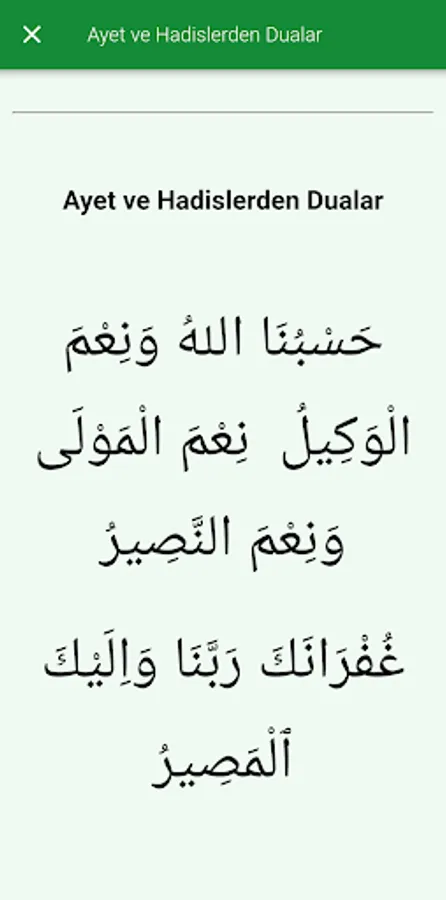 Ayet ve Hadislerden Dualar
Ayet ve Hadislerden Dualar
حَسْبُنَا اللهُ وَنِعْمَ
الْوَكِيلُ نِعْمَ الْمَوْلَى
وَنِعْمَ النَّصِيرُ
غُفْرَانَكَ رَبَّنَا وَاِلَيْكَ
ٱلْمَصِيرُ